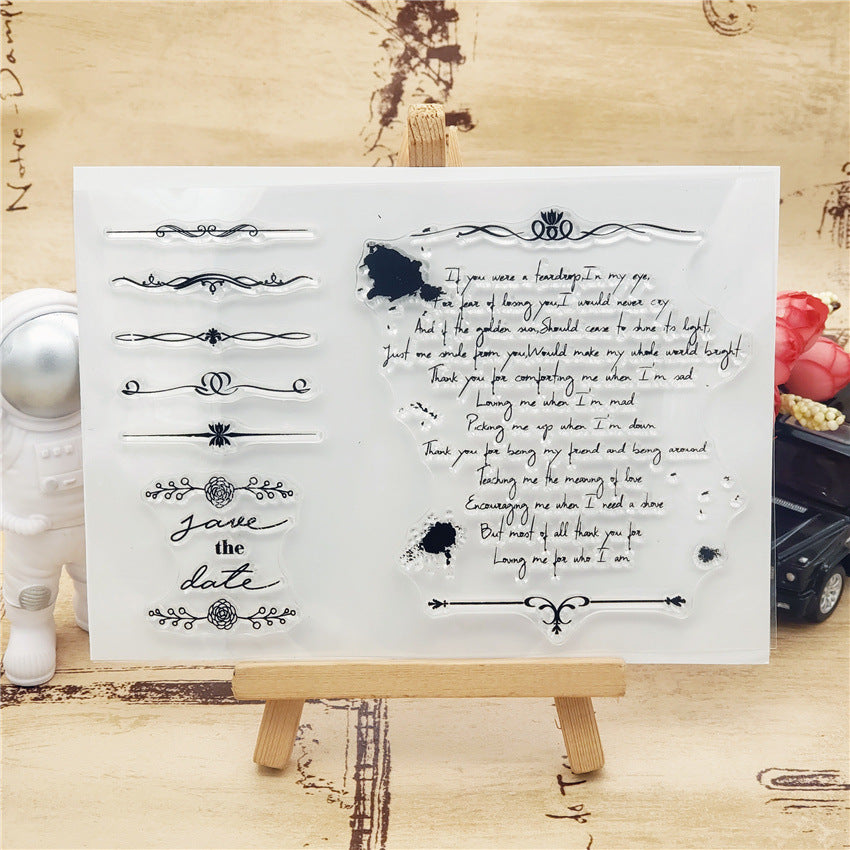 Notre-Damp
save
the
date
If you were a teardrop,In my eye,
For fear of losng you,I would never cry
And if the golden sun,Should cease to shine its light,
Just one smile from you,Would make my whole world bright
Thank you for comforting me when I'm sad
Loving me when I'm mad
Picking me up when I'm down
Thank you for being my friend and being around
Teaching me the meaning of love
Encouraging me when I need a shove
But most of all thank you for
Loving me for who I am